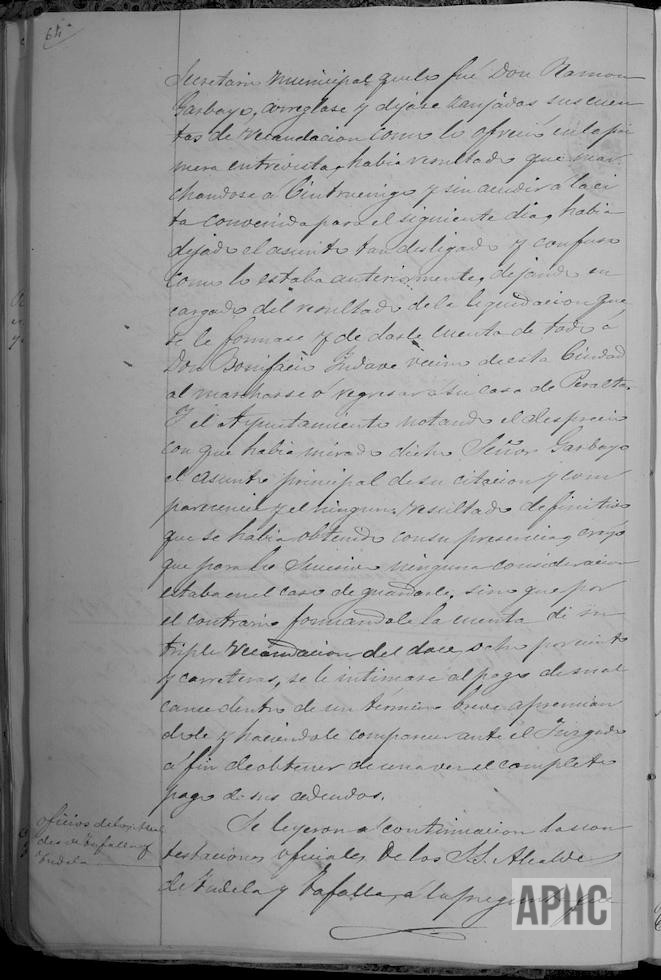 64
Secretario Municipal que lo fué Don Ramon
Garbayo, arreglase y dejase zanjadas sus cuen
tas de recaudacion como lo ofreció en la pri
mera entrevista, habia resultado que mar
chandose a Cintruenigo y sin acudir á la ci
ta convenida para el siguiente dia, habia
dejado el asunto tan desligado y confuso
como lo estaba anteriormente, dejando en
cargado del resultado de la liquidacion que
se le formase y de darle cuenta de todo á
Don Bonifacio Yndave vecino de esta Ciudad
al marcharse ó regresar á su casa de Peralta.
Y el Ayuntamiento notando el desprecio
con que habia mirado dicho Señor Garbayo
el asunto principal de su citacion y com
parecencia y el ningun resultado definitivo
que se habia obtenido con su presencia, creyó
que para lo sucesivo ninguna consideracion
estaba en el caso de guardarle, sino que por
el contrario formandole la cuenta de su
triple recaudacion del doce, ocho por ciento
y carreteras, se le intimase al pago de su al
cance dentro de un término breve apremian
dole y haciendole comparecer ante el Juzgado
á fin de obtener de una vez el completo
pago de sus adeudos.
Oficios de los Alcal
des de Tafalla y
Tudela
Se leyeron á continuacion las con
testaciones oficiales de los S.S. Alcaldes
de Tudela y Tafalla, á la pregunta que
APHC